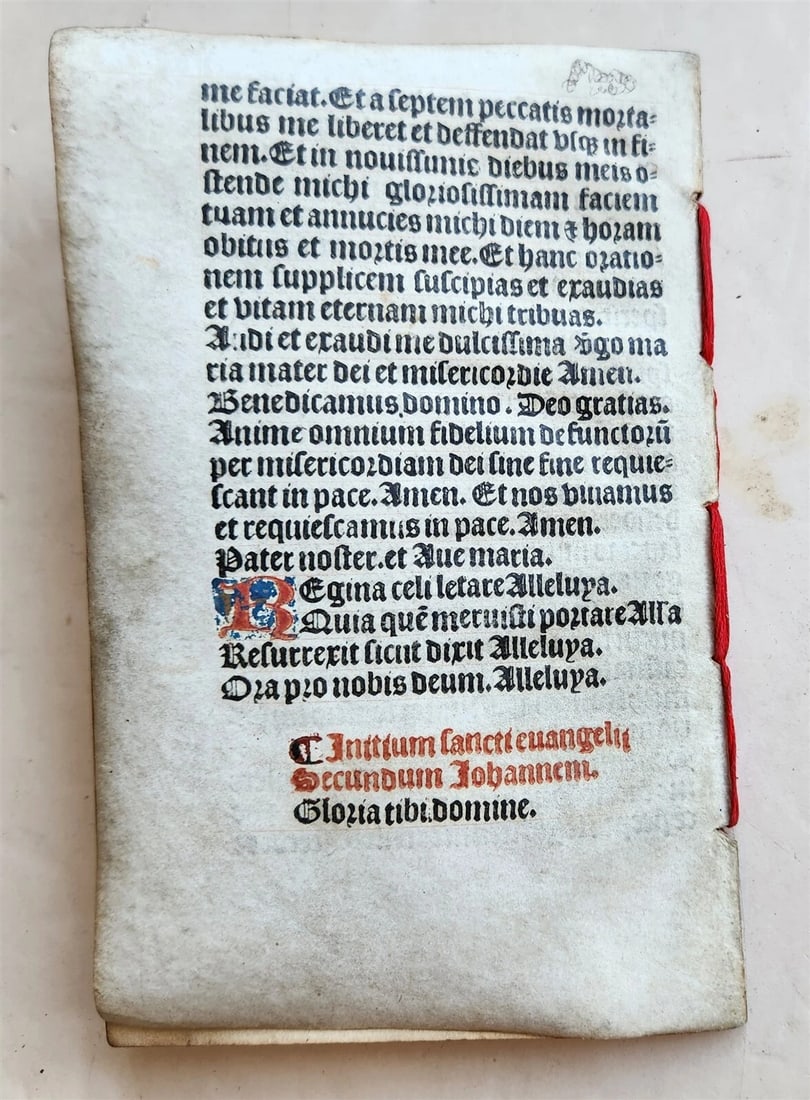 me faciat. Et a septem peccatis morta=
libus me liberet et deffendat vsqꝫ in fi=
nem. Et in nouissimis diebus meis o=
stende michi gloriosissimam faciem
tuam et annucies michi diem ⁊ horam
obitus et mortis mee. Et hanc oratio=
nem supplicem suscipias et exaudias
et vitam eternam michi tribuas.
Audi et exaudi me dulcissima v̄go ma
ria mater dei et misericordie Amen.
Benedicamus domino. Deo gratias.
Anime omnium fidelium defunctorū
per misericordiam dei sine fine requie=
scant in pace. Amen. Et nos viuamus
et requiescamus in pace. Amen.
Pater noster. et Aue maria.
REgina celi letare Alleluya.
Quia quē meruisti portare Alľa
Resurrexit sicut dixit Alleluya.
Ora pro nobis deum. Alleluya.
¶ Initium sancti euangelii
Secundum Johannem.
Gloria tibi domine.